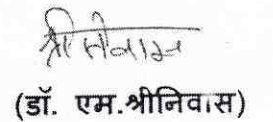 श्रीनिवास
(डॉ. एम.श्रीनिवास)